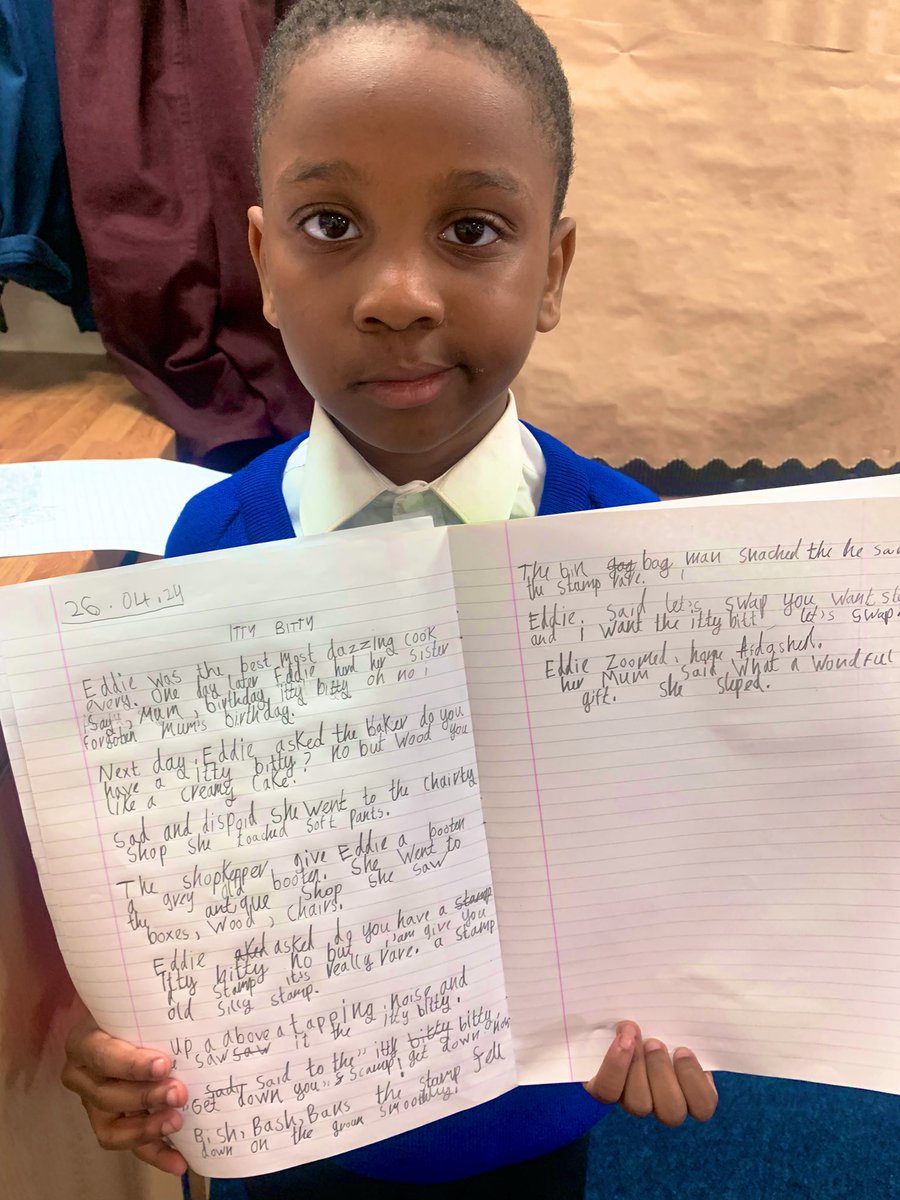 26.04.24
ITTY BITTY
Eddie was the best most dazzling cook
every. One day later Eddie herd her sister
say, Mum, birthday itty bitty oh no!
forgoten mum's birthday.
Next day Eddie asked the baker do you
have a itty bitty? no but wood you
like a creamy cake?
Sad and dispoid she went to the chairty
shop she toached soft pants.
The shopkepper give Eddie a booten
a grey old booten. She went to
the antique shop she saw
boxes, wood, chairs.
Eddie aked asked do you have a stamp
itty bitty no but i'am give you
a stamp it's really rare. a stamp
old silly stamp.
up a above a tapping noise and
saw saw it the itty bitty.
said to the itty bitty bitty,
"Get down you" scamp! get down now
Bish, Bash, Bans the stamp fell
down on the groun smoothly.
The bin gag bag man snached the he said
the stamp rare.
Eddie. said let's swap you want
and i want the itty bitt let's swap.
Eddie zoomed, home
her Mum said What a wondful
gift. she